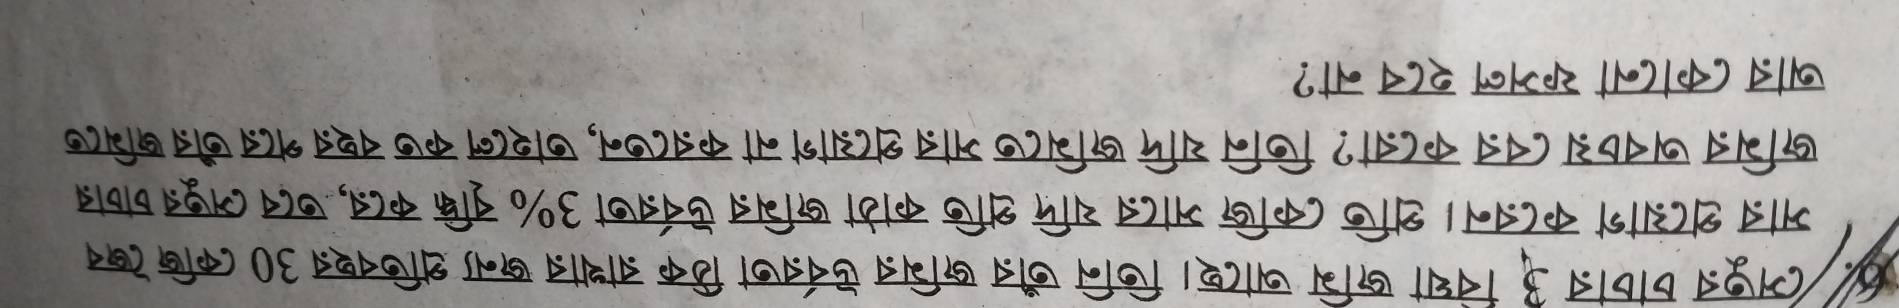 সেতুর চাচার বিঘা জমি আছে। তিনি তাঁর জমির উর্বরতা ঠিক রাখার জন্য প্রতিবছর 30 কেজি জৈব
সার প্রয়োগ করেন। প্রতি কেজি সারে যদি প্রতি কাঠা জমির উর্বরতা 3% বৃদ্ধি করে, তবে সেতুর চাচার
জমির অবচয় বের করো? তিনি যদি জমিতে সার প্রয়োগ না করতেন, তাহলে কত বছর পরে তাঁর জমিতে
আর কোনো ফসল হবে না?